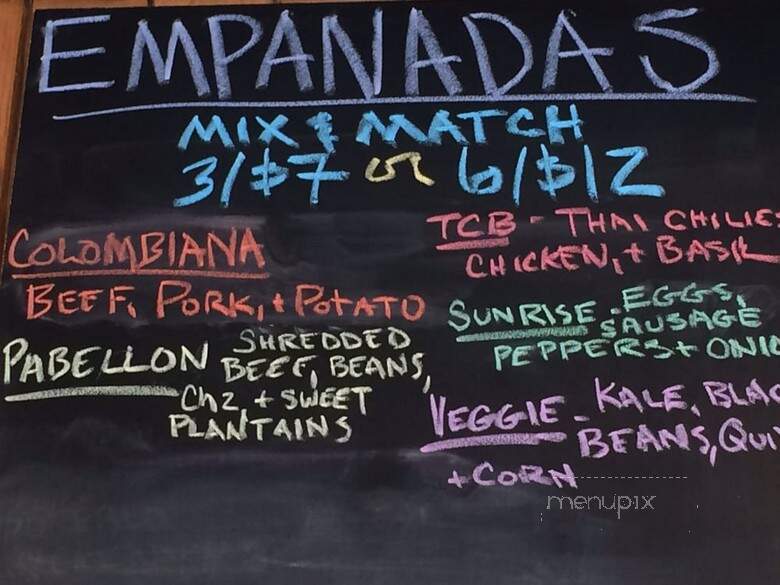 EMPANADAS
MIX & MATCH
3/$7 or 6/$12
COLOMBIANA
BEEF, PORK, + POTATO
PABELLON SHREDDED
BEEF, BEANS,
Chz, + SWEET
PLANTAINS
TCB - THAI CHILIE
CHICKEN, + BASIL
SUNRISE - EGGS,
SAUSAGE
PEPPERS + ONIO
VEGGIE - KALE, BLAC
BEANS, QUI
+ CORN
menupix